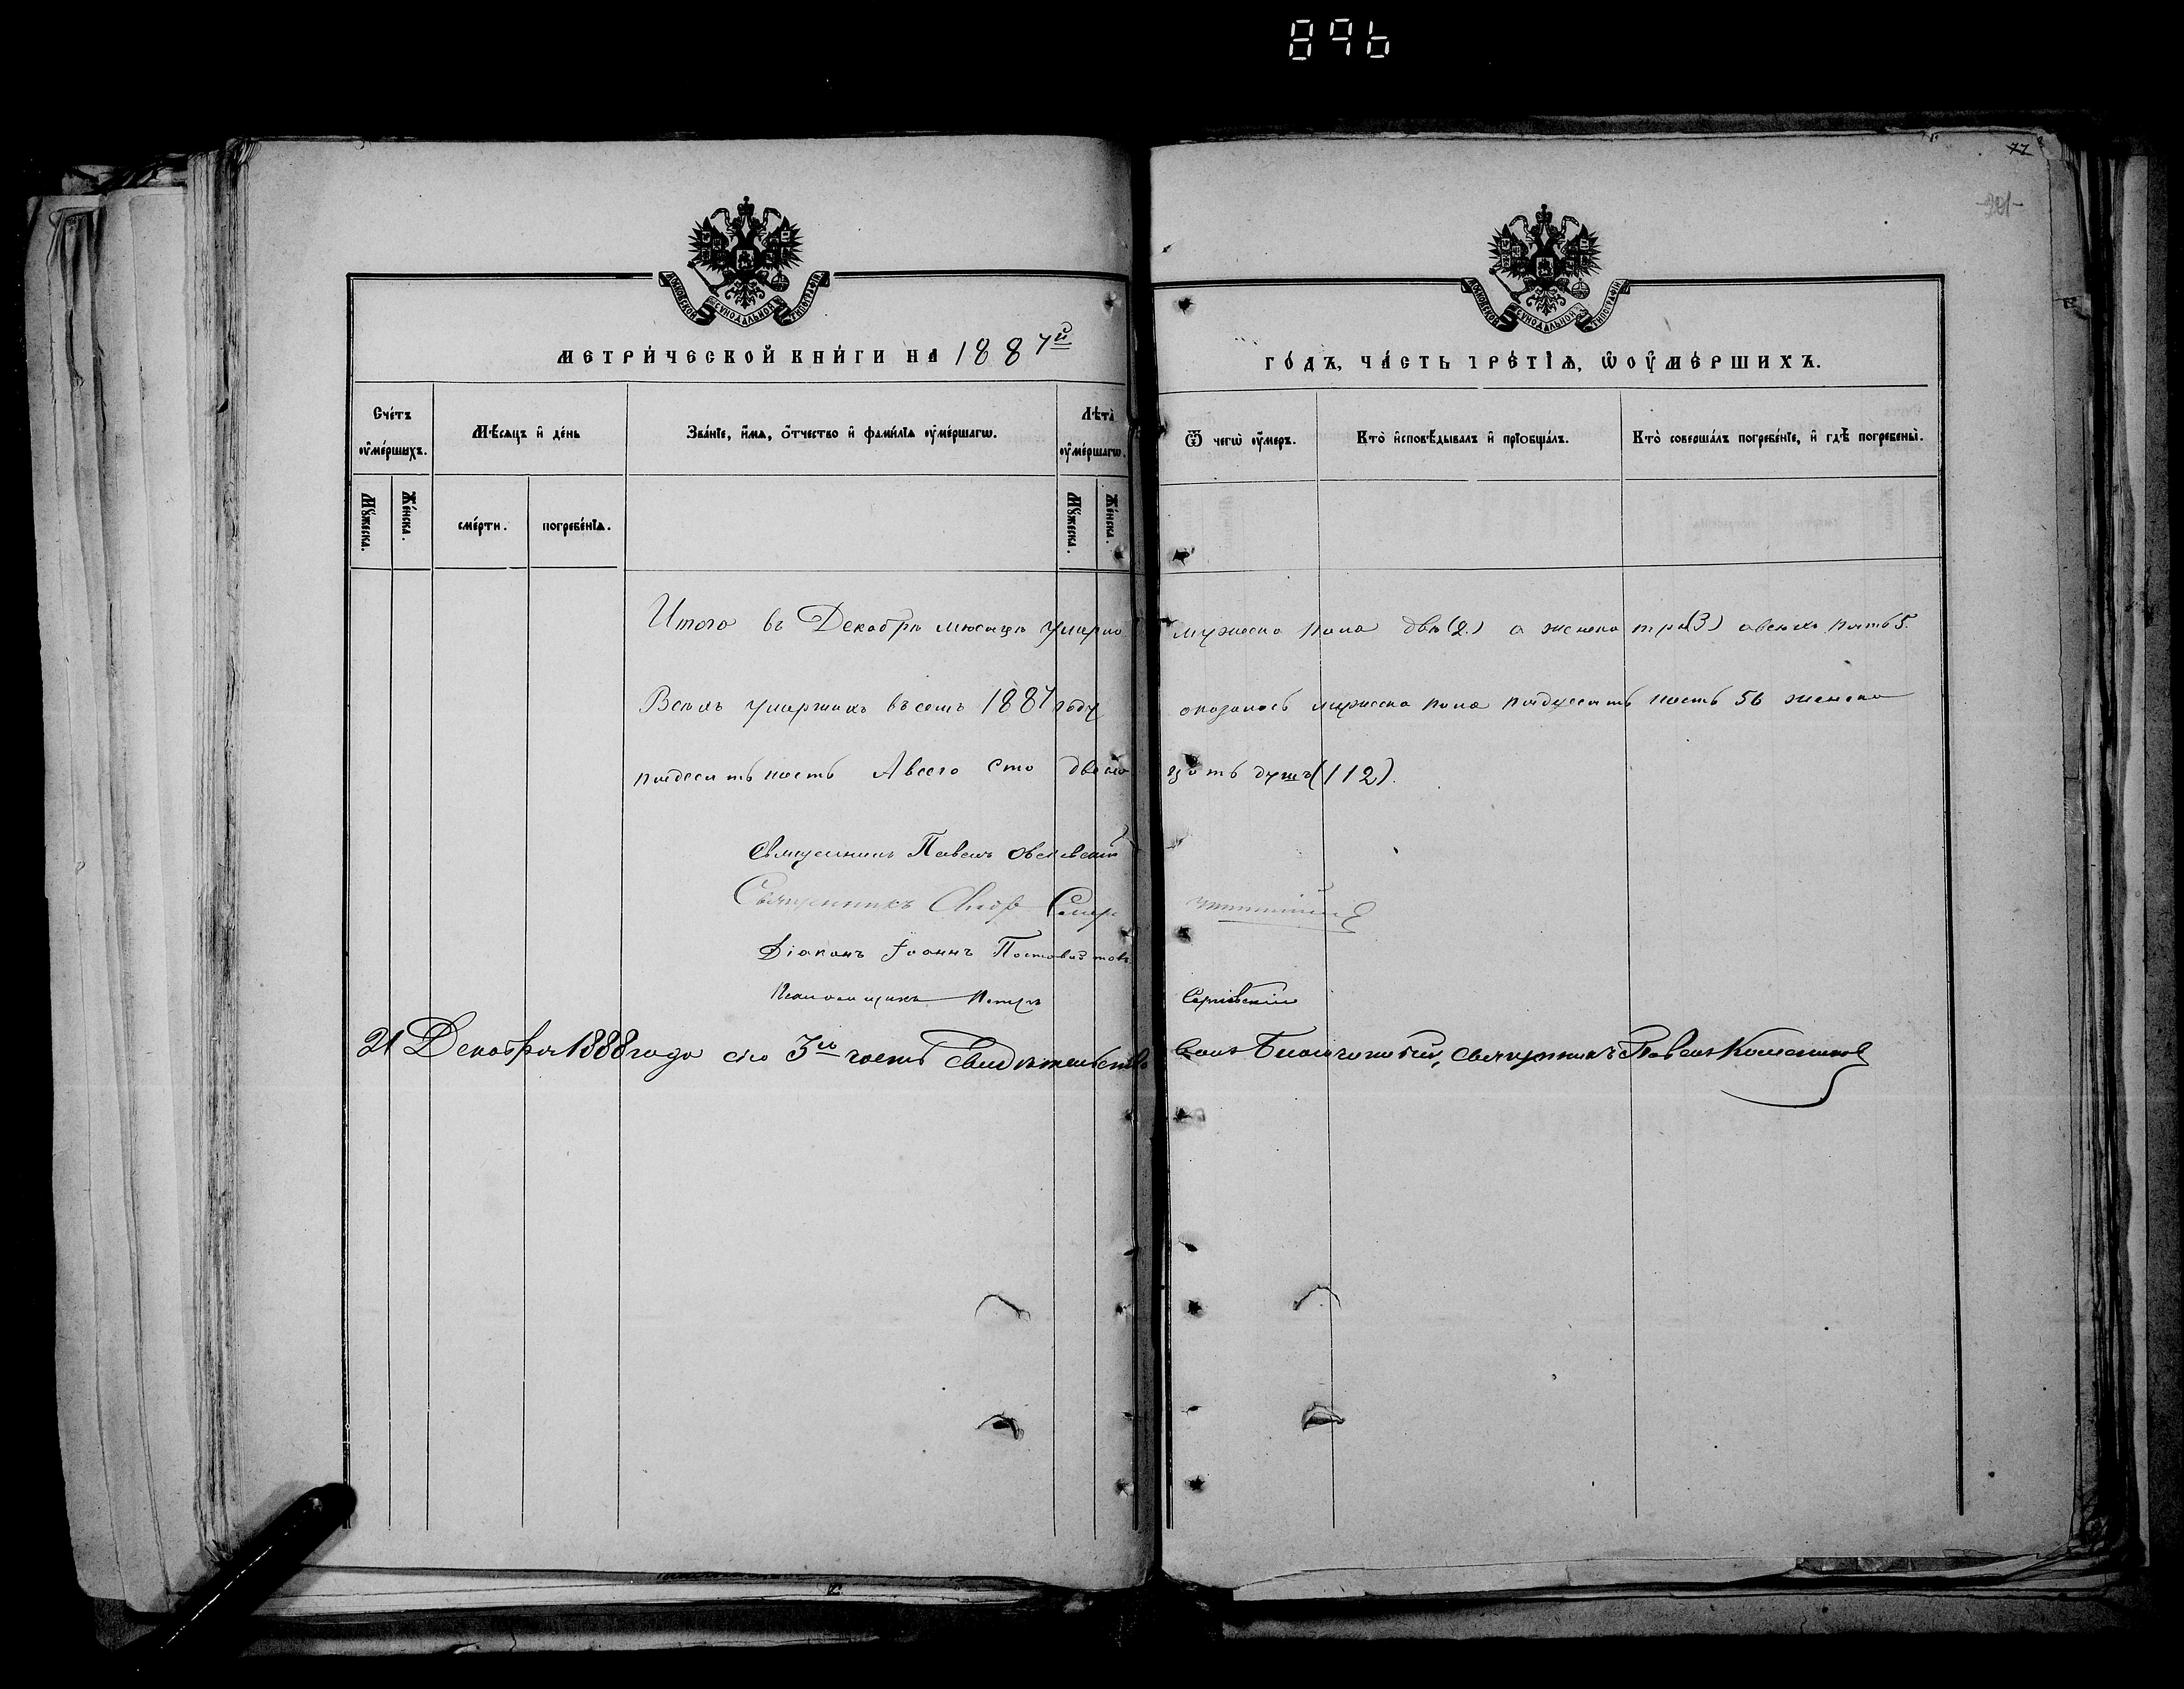 896
77
МОСКОВСКОЙ СѴНОДАЛЬНОЙ ТИПОГРАФІИ
МОСКОВСКОЙ СѴНОДАЛЬНОЙ ТИПОГРАФІИ
МЕТРИ́ЧЕСКОЙ КНИ́ГИ НА 1887й ГО́ДЪ, ЧА́СТЬ ТРЕ́ТІѦ, Ѡ ОУМЕ́РШИХЪ.
Сче́тъ оуме́ршихъ.
Мѣ́сяцъ и де́нь
Зва́нїе, и́мѧ, о́тчество и фами́лїѧ оуме́ршагѡ.
Лѣта̀ оуме́ршагѡ.
Ѿ чегѡ̀ оу́меръ.
Кто̀ исповѣ́дывалъ и прїобща́лъ.
Кто̀ соверша́лъ погребе́нїе, и гдѣ̀ погребены̀.
Мꙋ́жеска.
Же́нска.
сме́рти.
погребе́нїѧ.
Мꙋ́жеска.
Же́нска.
Итого въ Декабрѣ мѣсяцѣ умерло мужеска пола двѣ (2.) а женска три (3) а всѣхъ пять 5.
Всѣхъ умершихъ въ семъ 1887 году оказалось мужеска пола пядесять шесть 56 женска
пядесять шесть А всего сто двенацать душъ (112).
Священникъ Павелъ
Священникъ Андр
Діаконъ Іоаннъ
Псаломщикъ Петръ Сергіевскій
21 Декабря 1888 года сію 3ю часть свидѣтельствовалъ Благочинный, священникъ Павелъ